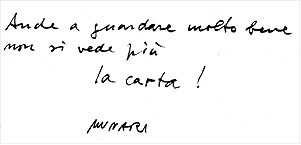 Anche a guardare molto bene
non si vede più
la carta !
MUNARI